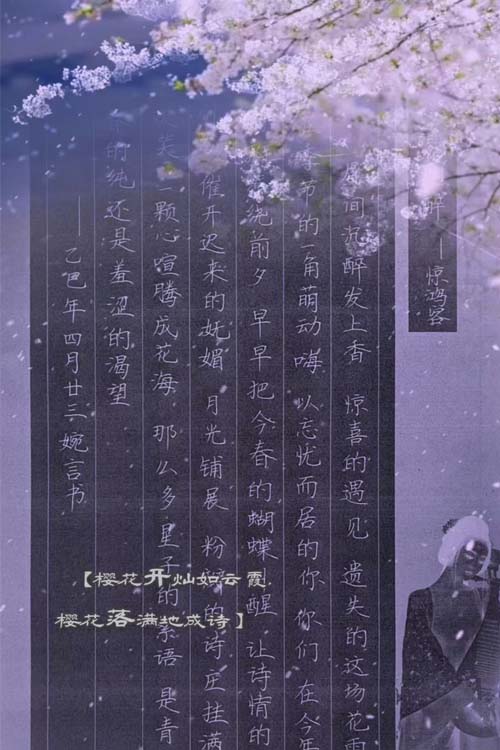 醉——惊鸿客
间沉醉发上香 惊喜的遇见 遗失的这场花雨
节的一角萌动 嗨 以忘忧而居的你 你们 在今年
纯前夕 早早把今春的蝴蝶 醒 让诗情的
催开迟来的妩媚 月光铺展 粉 的诗庄挂满
类一颗心喧腾成花海 那么多星子的 语 是青
的纯还是羞涩的渴望
——乙巳年四月廿三 婉言书
【樱花开灿如云霞
樱花落满地成诗】